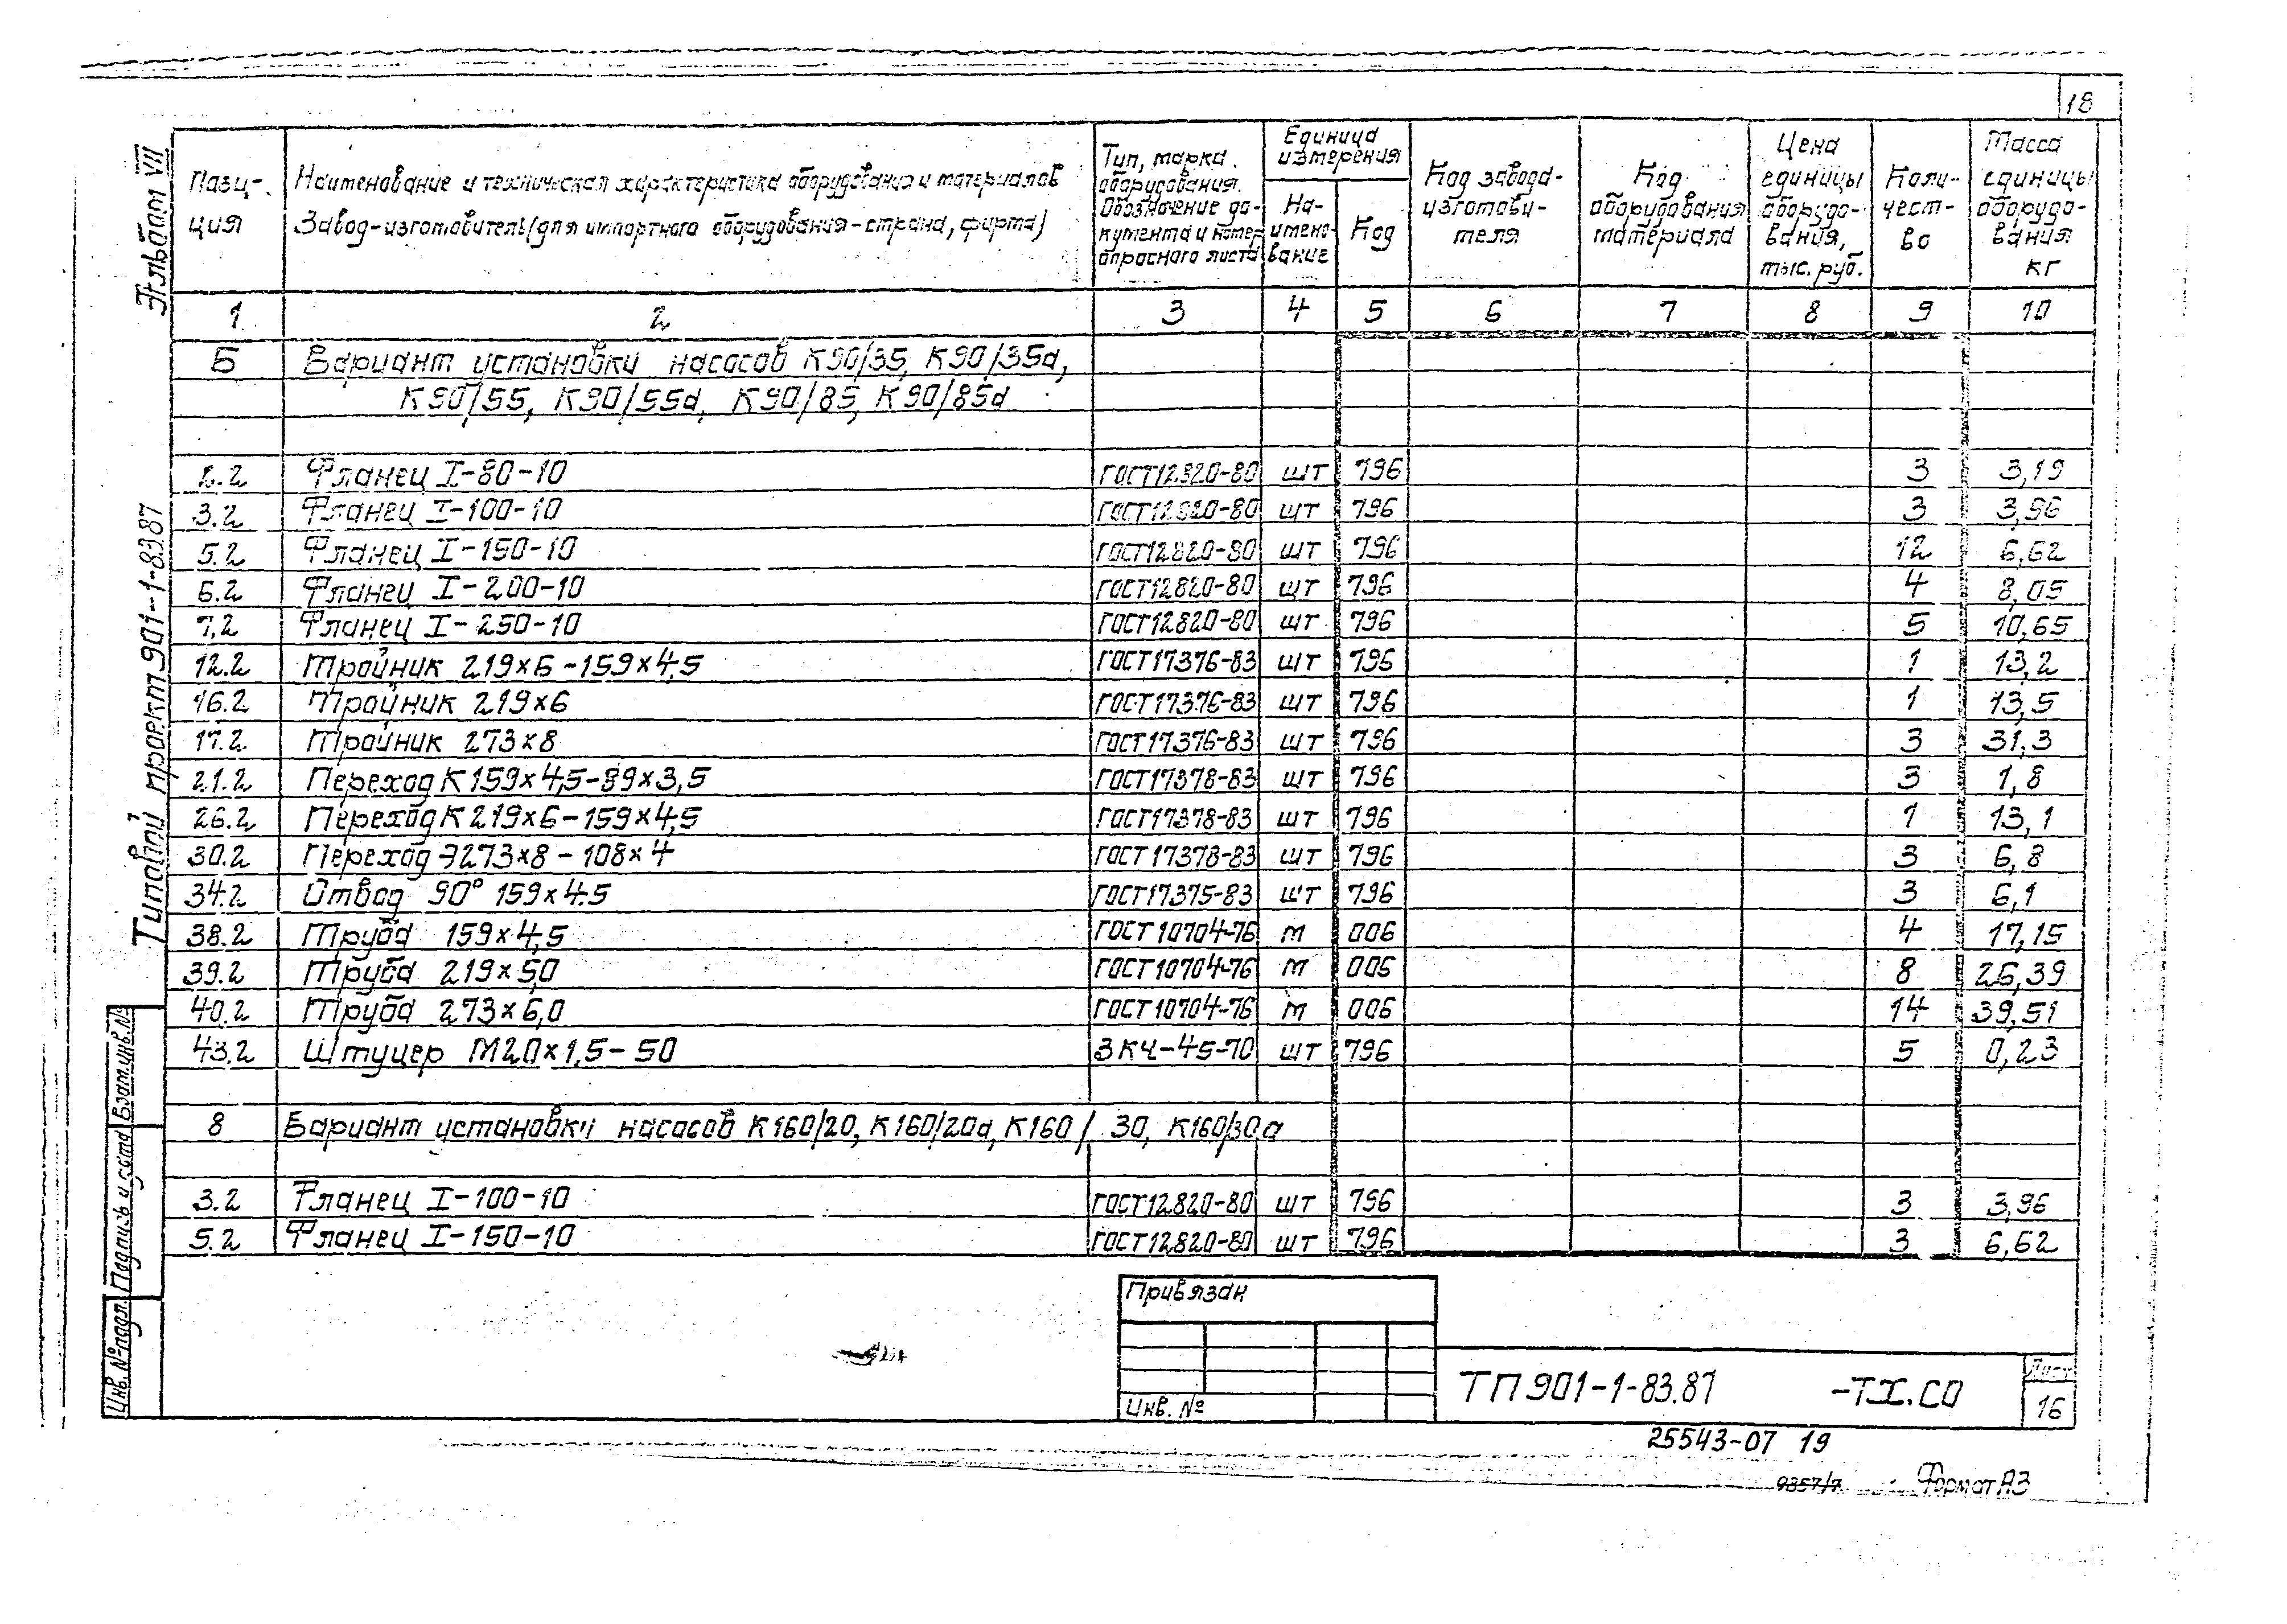 18
Альбом VII
Типовой проект 901-1-83.87
Пози-
ция
Наименование и техническая характеристика оборудования и материалов
Завод-изготовитель (для импортного оборудования-страна, фирма)
Тип, марка
оборудования.
Обозначение до-
кумента и номер
опросного листа
Единица
измерения
На-
имено-
вание
Код
Код завода-
изготови-
теля
Код
оборудования
материала
Цена
единицы
оборудо-
вания,
тыс. руб.
Коли-
чест-
во
Масса
единицы
оборудо-
вания
кг
1 2 3 4 5 6 7 8 9 10
Б Вариант установки насосов К90/35, К90/35а,
К90/55, К90/55а, К90/85, К90/85а
2.2 Фланец I-80-10 ГОСТ12820-80 шт 796 3 3,19
3.2 Фланец I-100-10 ГОСТ12820-80 шт 796 3 3,96
5.2 Фланец I-150-10 ГОСТ12820-80 шт 796 12 6,62
6.2 Фланец I-200-10 ГОСТ12820-80 шт 796 4 8,05
7.2 Фланец I-250-10 ГОСТ12820-80 шт 796 5 10,65
12.2 Тройник 219х6-159х4,5 ГОСТ17376-83 шт 796 1 13,2
16.2 Тройник 219х6 ГОСТ17376-83 шт 796 1 13,5
17.2 Тройник 273х8 ГОСТ17376-83 шт 796 3 31,3
21.2 Переход К159х4,5-89х3,5 ГОСТ17378-83 шт 796 3 1,8
26.2 Переход К219х6-159х4,5 ГОСТ17378-83 шт 796 1 13,1
30.2 Переход Э273х8-108х4 ГОСТ17378-83 шт 796 3 6,8
34.2 Отвод 90° 159х4.5 ГОСТ17375-83 шт 796 3 6,1
38.2 Труба 159х4,5 ГОСТ10704-76 м 006 4 17,15
39.2 Труба 219х5,0 ГОСТ10704-76 м 006 8 26,39
40.2 Труба 273х6,0 ГОСТ10704-76 м 006 14 39,51
43.2 Штуцер М20х1,5-50 ЗКЧ-45-70 шт 796 5 0,23
8 Вариант установки насосов К160/20, К160/20а, К160/30, К160/30а
3.2 Фланец I-100-10 ГОСТ12820-80 шт 796 3 3,96
5.2 Фланец I-150-10 ГОСТ12820-80 шт 796 3 6,62
Взам.инв.№
Подпись и дата
Инв.№подл.
Привязан
Инв. №
ТП901-1-83.87 -ТХ.СО
Лист
16
25543-07 19
9357/7
Формат А3